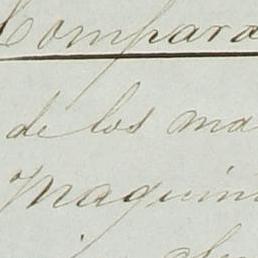 Compara
de los ma
Maquin